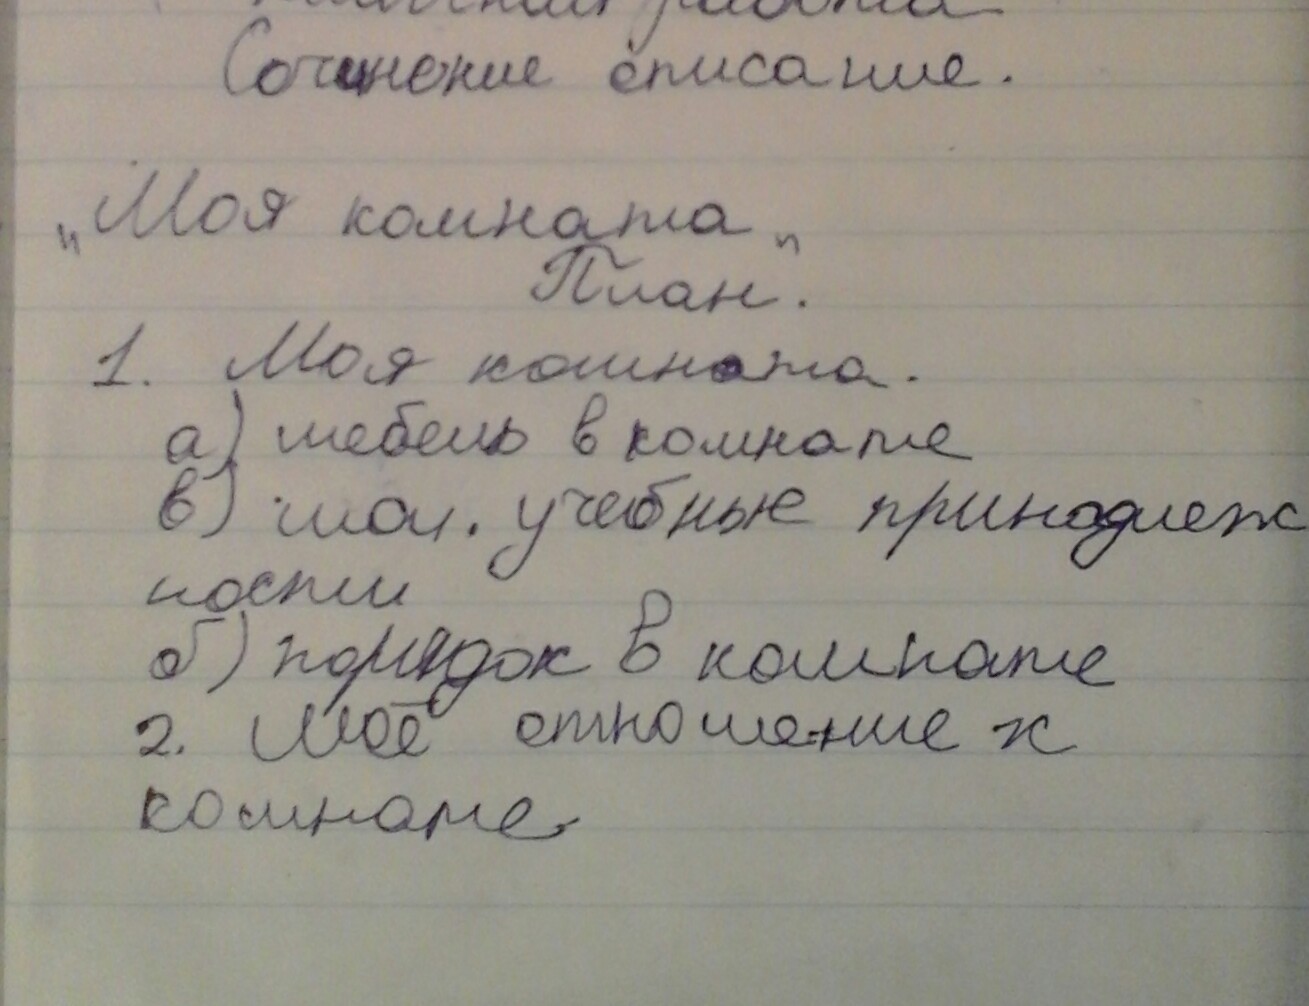 Классная работа
Сочинение описание.
„Моя комната„
План.
1. Моя комната.
а) мебель в комнате
в) мои. учебные принадлеж
ности
б) порядок в комнате
2. Моё отношение к
комнате